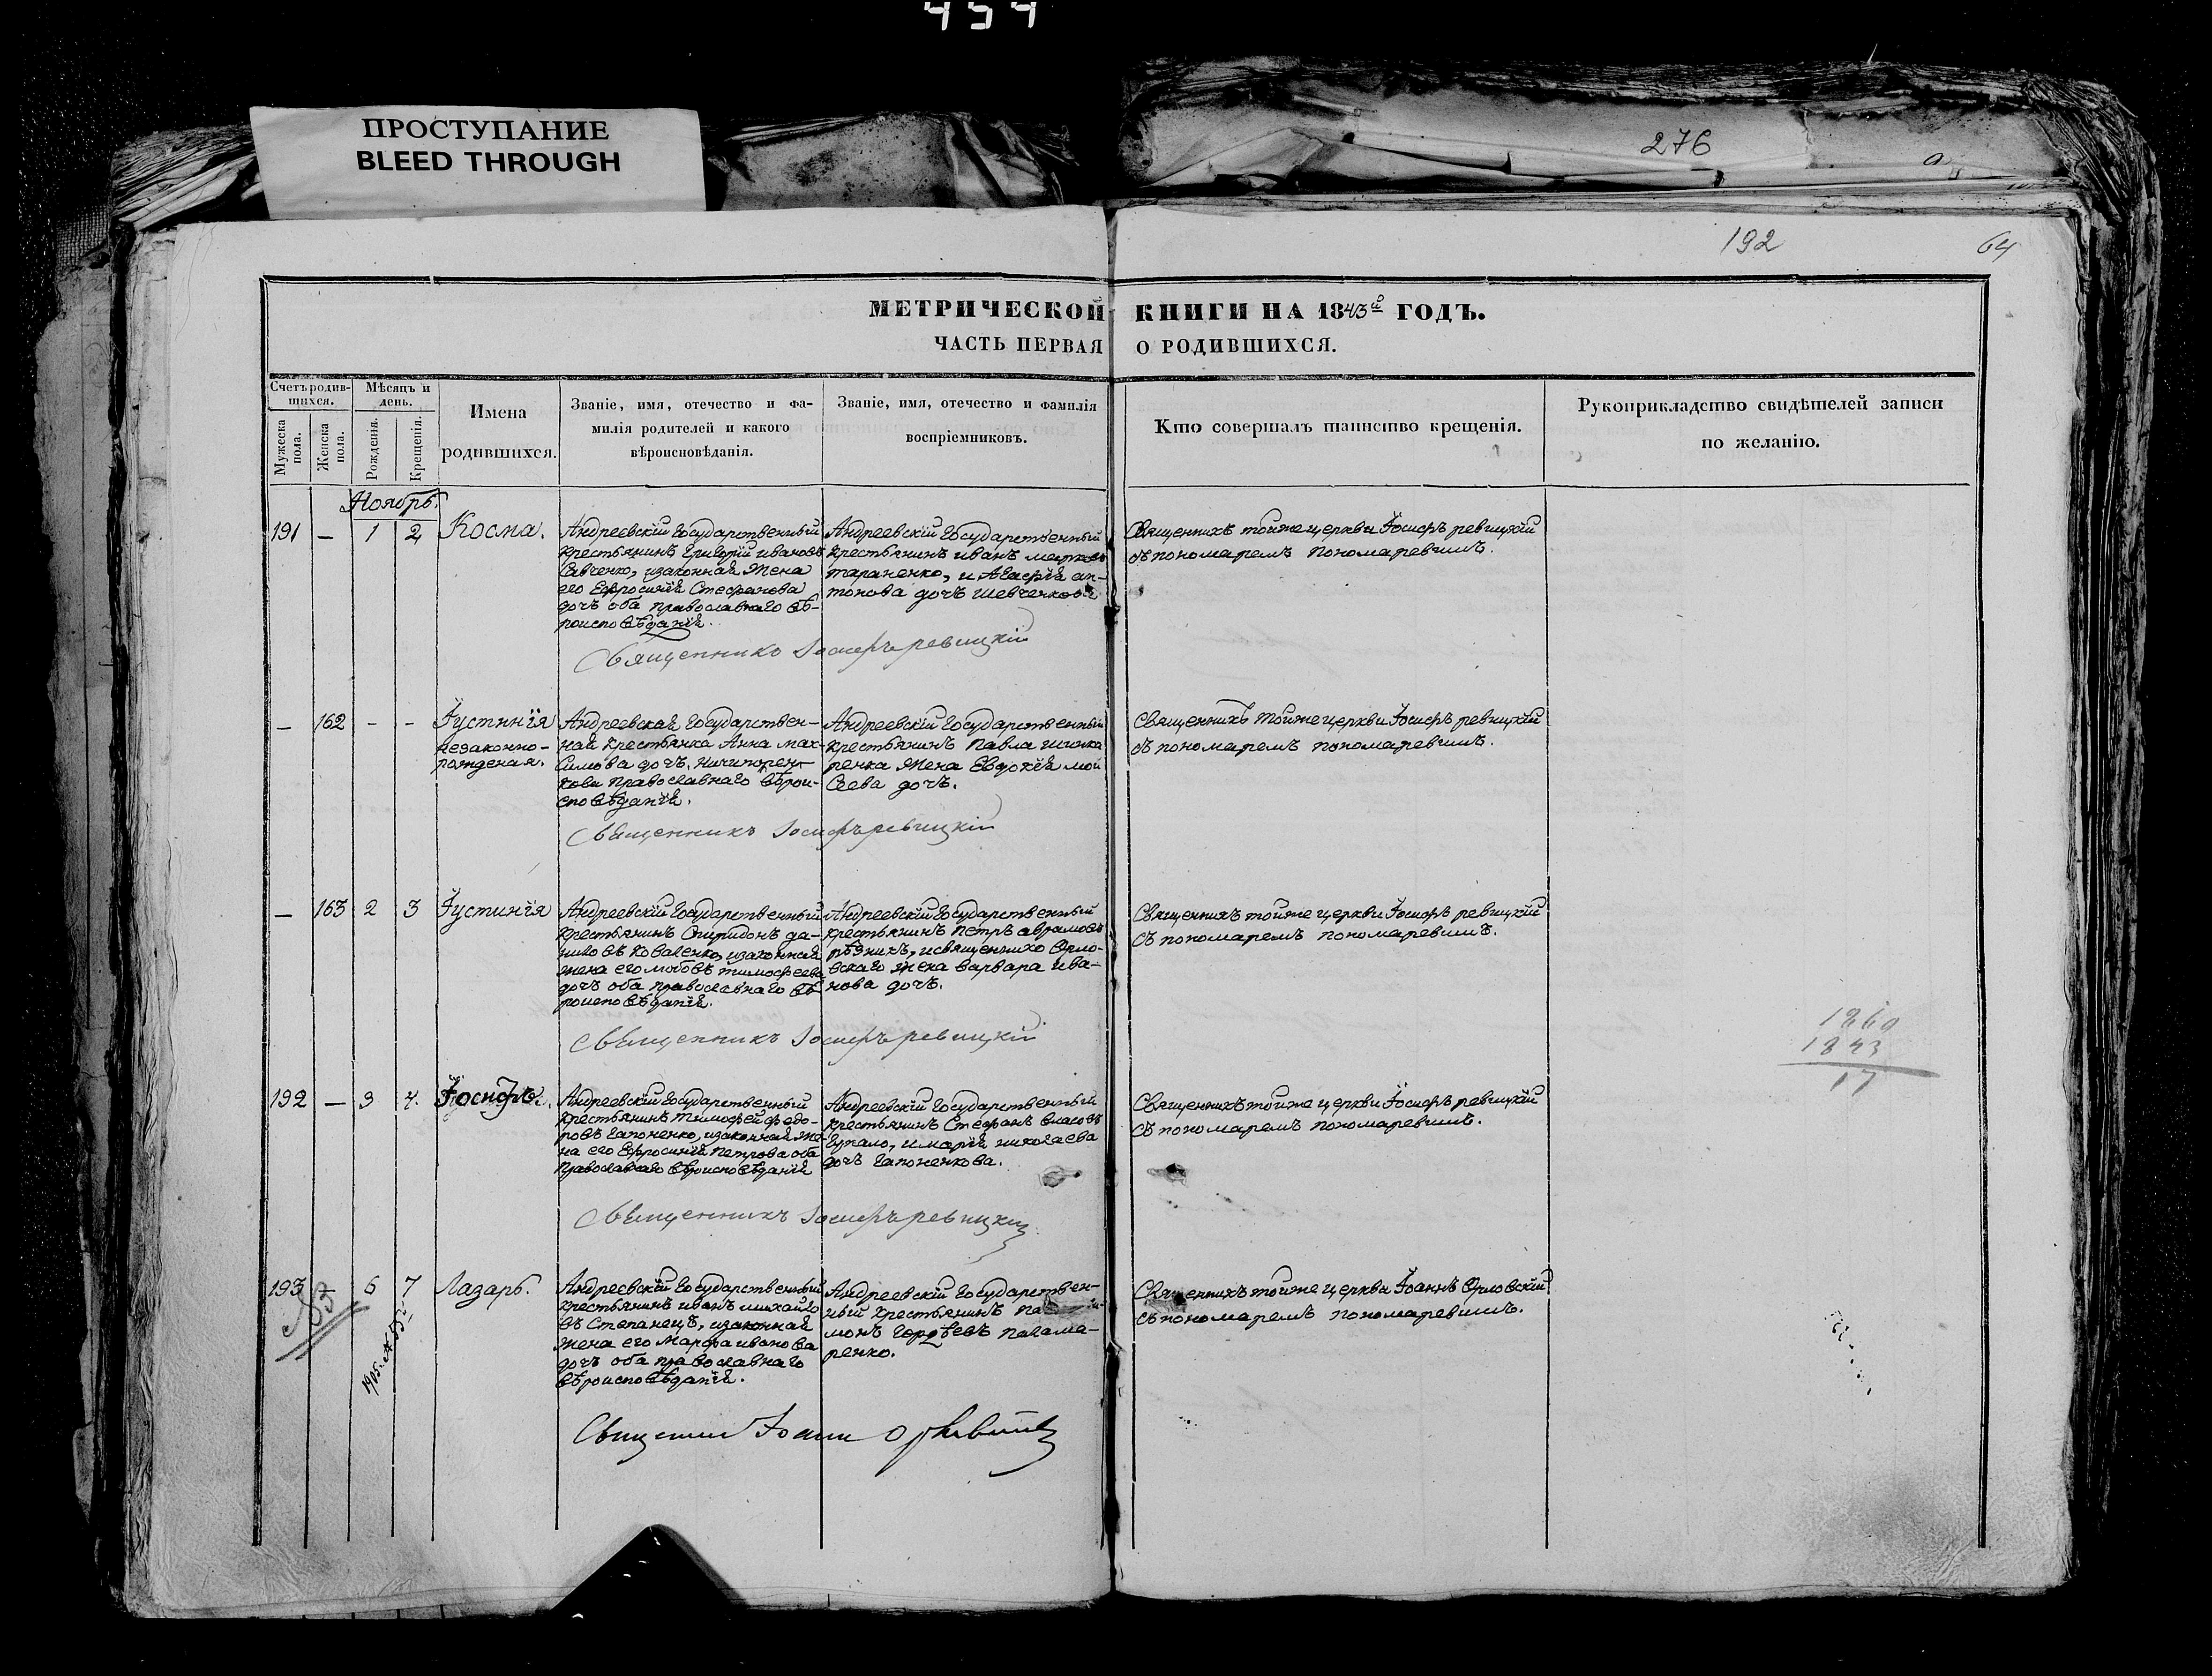 454
ПРОСТУПАНИЕ
BLEED THROUGH
276
192
64
МЕТРИЧЕСКОЙ КНИГИ НА 1843й ГОДЪ.
ЧАСТЬ ПЕРВАЯ О РОДИВШИХСЯ.
Счетъ родив-
шихся.
Мужеска
пола.
Женска
пола.
Мѣсяцъ и
день.
Рожденія.
Крещенія.
Имена
родившихся.
Званіе, имя, отечество и фа-
милія родителей и какого
вѣроисповѣданія.
Званіе, имя, отечество и фамилія
воспріемниковъ.
Кто совершалъ таинство крещенія.
Рукоприкладство свидѣтелей записи
по желанію.
Ноябрь
191 — 1 2 Косма.
Андреевскій Государственный
крестьянинъ Григорій ивановъ
Савченко, изаконная жена
его Ефросинія Стефанова
дочь оба православнаго вѣ-
роисповѣданія.
Андреевскій Государственный
крестьянинъ иванъ марковъ
тараненко, и Агафія ан-
тонова дочь шевченкова
Священникъ тойже церкви Іосифъ ревицкій
съ пономаремъ пономаревимъ.
Священникъ Іосифъ ревицкій
— 162 - - Іустинія
незаконно-
рожденая.
Андреевская Государствен-
ная крестьянка Анна мак-
симова дочь, ничипорен-
кова православнаго вѣрои-
сповѣданія.
Андреевскій Государственный
крестьянинъ Павла шинка
ренка жена Евдокія мои
сеева дочь.
Священникъ тойже церкви Іосифъ ревицкій
съ пономаремъ пономаревимъ.
Священникъ Іосифъ ревицкій
— 163 2 3 Іустинія
Андреевскій Государственный
крестьянинъ Спиридонъ да-
ниловъ Коваленко, изаконная
жена его любовь тимофеева
дочь оба православнаго вѣ
роисповѣданія.
Андреевскій Государственный
крестьянинъ Петръ аврамовъ
рѣзникъ, и священнико Орло-
вскаго жена варвара ива-
нова дочь.
Священникъ тойже церкви Іосифъ ревицкій
съ пономаремъ пономаревимъ.
Священникъ Іосифъ ревицкій
1860
1843
17
192 — 3 4. Іосифъ.
Андреевскій Государственный
крестьянинъ тимофей федо-
ровъ Гапоненко, изаконная же-
на его Ефросинія Петрова оба
православнаго вѣроисповѣданія
Андреевскій Государственный
крестьянинъ Стефанъ власовъ
Гупало, и марія николаева
дочь Гапоненкова.
Священникъ тойже церкви Іосифъ ревицкій
съ пономаремъ пономаревимъ.
Священникъ Іосифъ ревицкій
193 6 7 Лазарь.
Андреевскій Государственный
крестьянинъ иванъ михайло
въ Степанецъ, изаконная
жена его Марфа иванова
дочь оба православнаго
вѣроисповѣданія.
Андреевскій Государствен-
ный крестьянинъ
монъ Гордѣевъ палама-
ренко.
Священникъ тойже церкви Іоаннъ Орловскій
съ пономаремъ пономаревимъ.
Священникъ Іоаннъ Орловскій